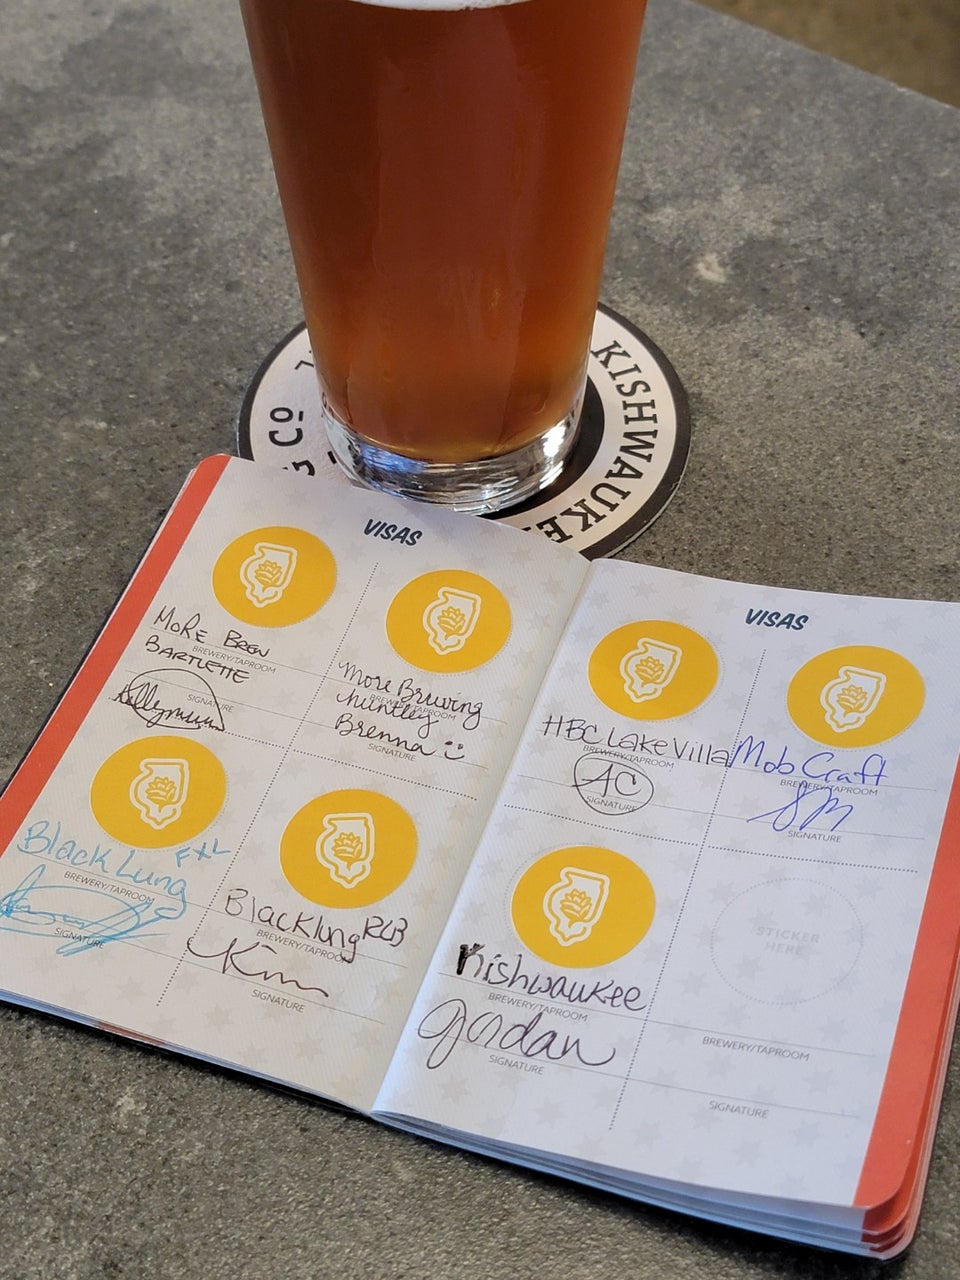 KISHWAUKE
G CO
VISAS
MORE BREW
BREWERY/TAPROOM
BARTLETTE
SIGNATURE
More Brewing
BREWERY/TAPROOM
Huntley
Brenna :)
SIGNATURE
Black Lung FXL
BREWERY/TAPROOM
SIGNATURE
Blacklung RLB
BREWERY/TAPROOM
Kim
SIGNATURE
VISAS
HBC Lake Villa
BREWERY/TAPROOM
AC
SIGNATURE
Mob Craft
BREWERY/TAPROOM
SIGNATURE
Kishwaukee
BREWERY/TAPROOM
Jordan
SIGNATURE
STICKER
HERE
BREWERY/TAPROOM
SIGNATURE